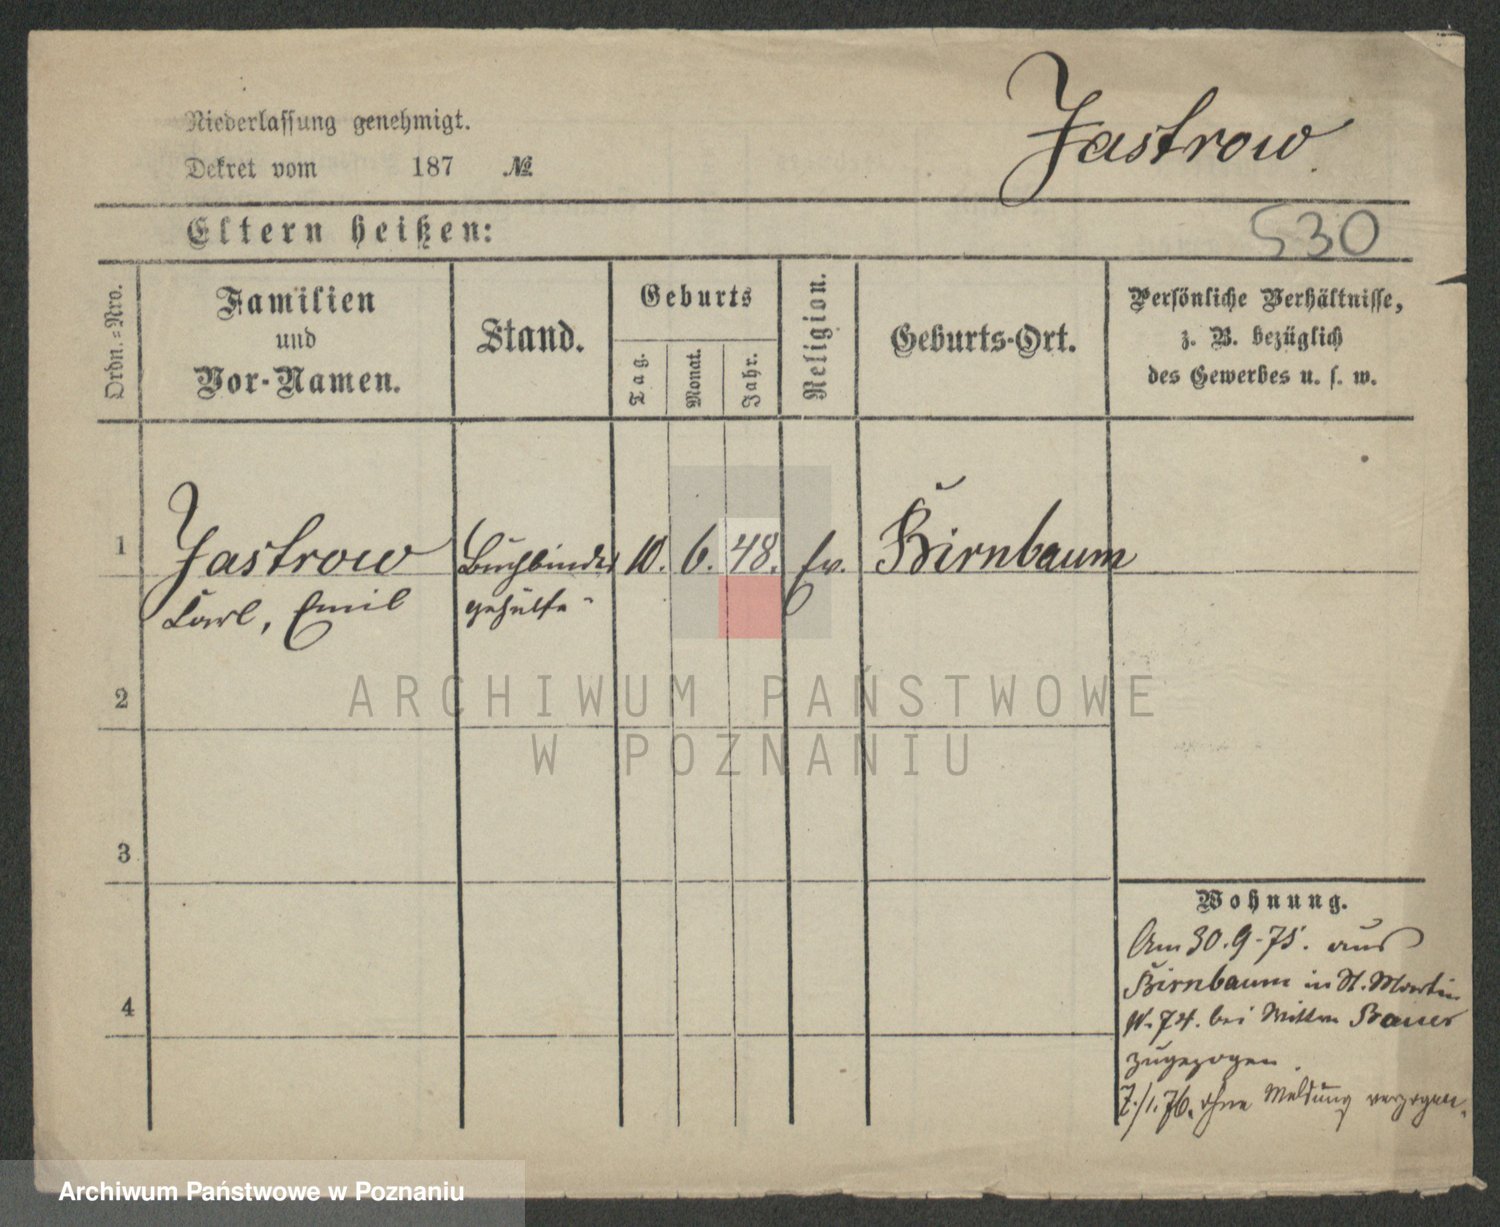 Jastrow
Niederlassung genehmigt.
Dekret vom 187 №
Eltern heißen:
530
Ordn.=Nro.
Familien
und
Vor-Namen.
Stand.
Geburts
Tag.
Monat.
Jahr.
Religion.
Geburts-Ort.
Persönliche Verhältnisse,
z. B. bezüglich
des Gewerbes u. s. w.
1 Jastrow Buchbinder 10. 6. 48. ev. Birnbaum
Carl, Emil gehülfe
2
3
4
ARCHIWUM PAŃSTWOWE
W POZNANIU
Wohnung.
Am 30.9.75. aus
Birnbaum in St. Martin
N. 74. bei Bauer
zugezogen.
7./1.76. ohne Meldung verzogen.
Archiwum Państwowe w Poznaniu